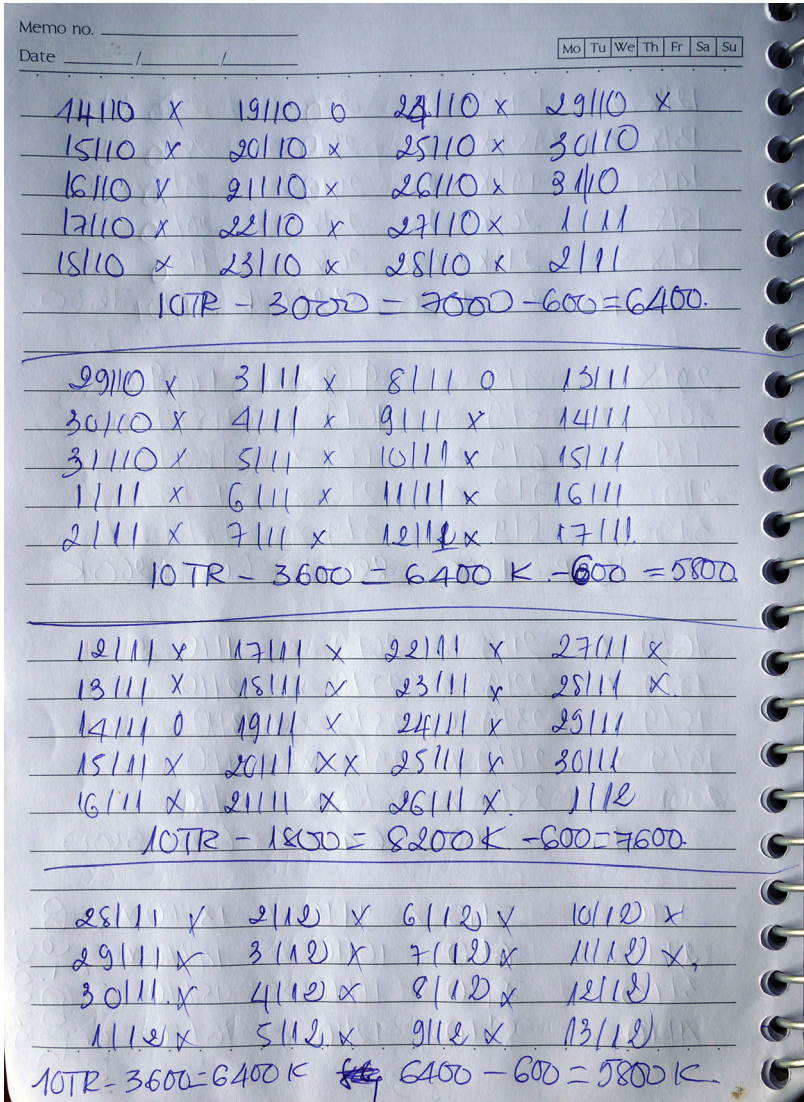 Memo no.
Date / / Mo Tu We Th Fr Sa Su
14/10 x 19/10 0 24/10 x 29/10 x
15/10 x 20/10 x 25/10 x 30/10
16/10 x 21/10 x 26/10 x 31/10
17/10 x 22/10 x 27/10 x 1/11
18/10 x 23/10 x 28/10 x 2/11
10TR - 3000 = 7000 - 600 = 6400.
29/10 x 3/11 x 8/11 0 13/11
30/10 x 4/11 x 9/11 x 14/11
31/10 x 5/11 x 10/11 x 15/11
1/11 x 6/11 x 11/11 x 16/11
2/11 x 7/11 x 12/11 x 17/11
10TR - 3600 = 6400 K - 600 = 5800.
12/11 x 17/11 x 22/11 x 27/11 x
13/11 x 18/11 x 23/11 x 28/11 x
14/11 0 19/11 x 24/11 x 29/11
15/11 x 20/11 xx 25/11 x 30/11
16/11 x 21/11 x 26/11 x 1/12
10TR - 1800 = 8200K - 600 = 7600.
28/11 x 2/12 x 6/12 x 10/12 x
29/11 x 3/12 x 7/12 x 11/12 x
30/11 x 4/12 x 8/12 x 12/12
1/12 x 5/12 x 9/12 x 13/12
10TR - 3600 = 6400K 6400 - 600 = 5800K.